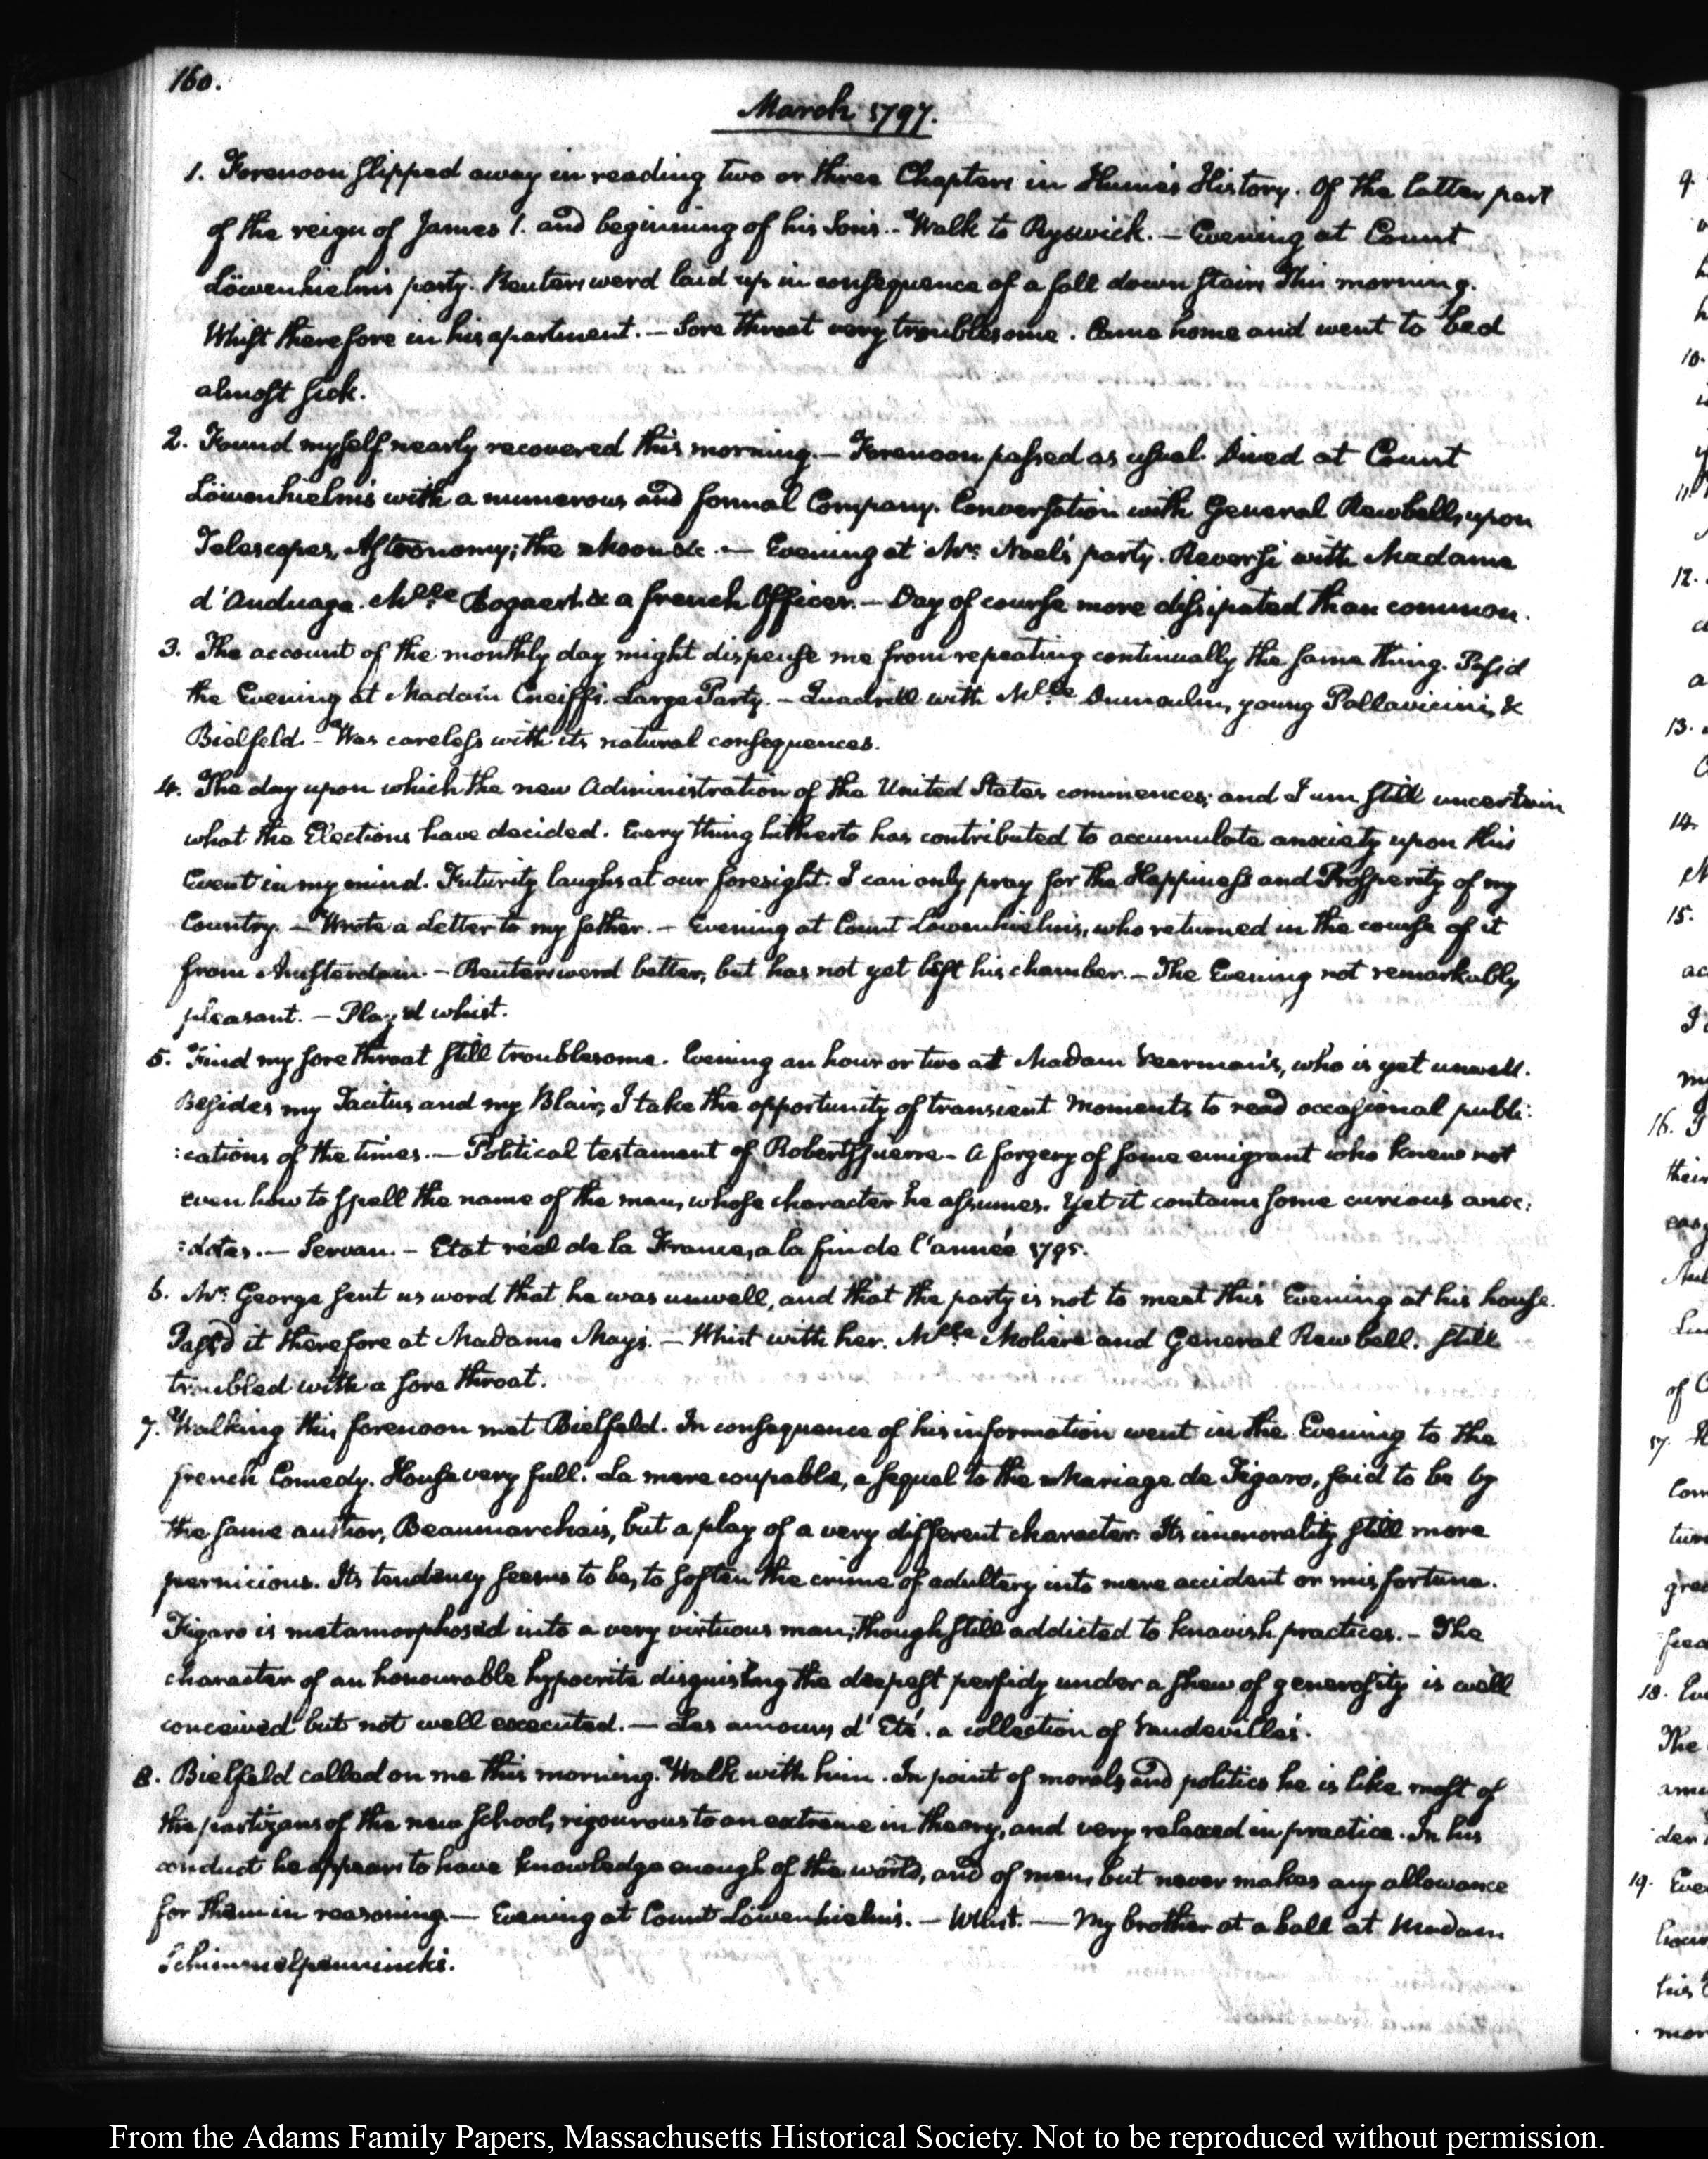 160.
March 1797.
1. Forenoon slipped away in reading two or three Chapters in Hume's History. Of the latter part
of the reign of James 1. and beginning of his Son's. - Walk to Ryswick. — Evening at Count
Löwenhielm's party. Reutersward laid up in consequence of a fall down stairs this morning.
Whist therefore in his apartment. — Sore throat very troublesome. Came home and went to bed
almost sick.
2. Found myself nearly recovered this morning. — Forenoon passed as usual. Dined at Count
Löwenhielm's with a numerous and formal Company. Conversation with General Rewbell, upon
Telescopes, Astronomy; the Moon &c. — Evening at Mr. Noel's party. Reversi with Madame
d'Anduaga. Mlle. Bogaert & a french Officer. — Day of course more dissipated than common.
3. The account of the monthly day might dispense me from repeating continually the same thing. Pass'd
the Evening at Madam Cneiffs. Large Party. — Quadrill with Mlle. Dumoulin, young Pallavicini, &
Bielfeld. - Was careless with its natural consequences.
4. The day upon which the new Administration of the United States commences; and I am still uncertain
what the Elections have decided. Every thing hitherto has contributed to accumulate anxiety upon this
Event in my mind. Futurity laughs at our foresight. I can only pray for the Happiness and Prosperity of my
Country. — Wrote a Letter to my father. — Evening at Count Löwenhielm's, who returned in the course of it
from Amsterdam. — Reutersward better, but has not yet left his chamber. — The Evening not remarkably
pleasant. — Play'd whist.
5. Find my sore throat still troublesome. Evening an hour or two at Madam Veerman's, who is yet unwell.
Besides my Tacitus and my Blair, I take the opportunity of transient Moments to read occasional publi:
:cations of the times. — Political testament of Robertspierre - A forgery of some emigrant who knew not
even how to spell the name of the man, whose character he assumes. Yet it contains some curious anec:
:dotes. — Servan. - Etat réel de la France, a la fin de l'année 1795.
6. Mr. George sent us word that he was unwell, and that the party is not to meet this Evening at his house.
Pass'd it therefore at Madame Mays. — Whist with her. Mlle. Moliere and General Rewbell. Still
troubled with a sore throat.
7. Walking this forenoon met Bielfeld. In consequence of his information went in the Evening to the
french Comedy. House very full. La mere coupable, a sequel to the Mariage de Figaro, said to be by
the same author, Beaumarchais, but a play of a very different character. Its immorality still more
pernicious. Its tendency seems to be, to soften the crime of adultery into mere accident or misfortune.
Figaro is metamorphosed into a very virtuous man; though still addicted to knavish practices. - The
character of an honourable hypocrite disguising the deepest perfidy under a shew of generosity is well
conceived but not well executed. — Les amours d'Eté. a collection of Vaudevilles.
8. Bielfeld called on me this morning. Walk with him. In point of morals and politics he is like most of
the partizans of the new school, rigourous to an extreme in theory, and very relaxed in practice. In his
conduct he appears to have knowledge enough of the world, and of men, but never makes any allowance
for them in reasoning. — Evening at Count Löwenhielm's. — Whist. — My brother at a ball at Madam
Schimmelpennincks.
From the Adams Family Papers, Massachusetts Historical Society. Not to be reproduced without permission.